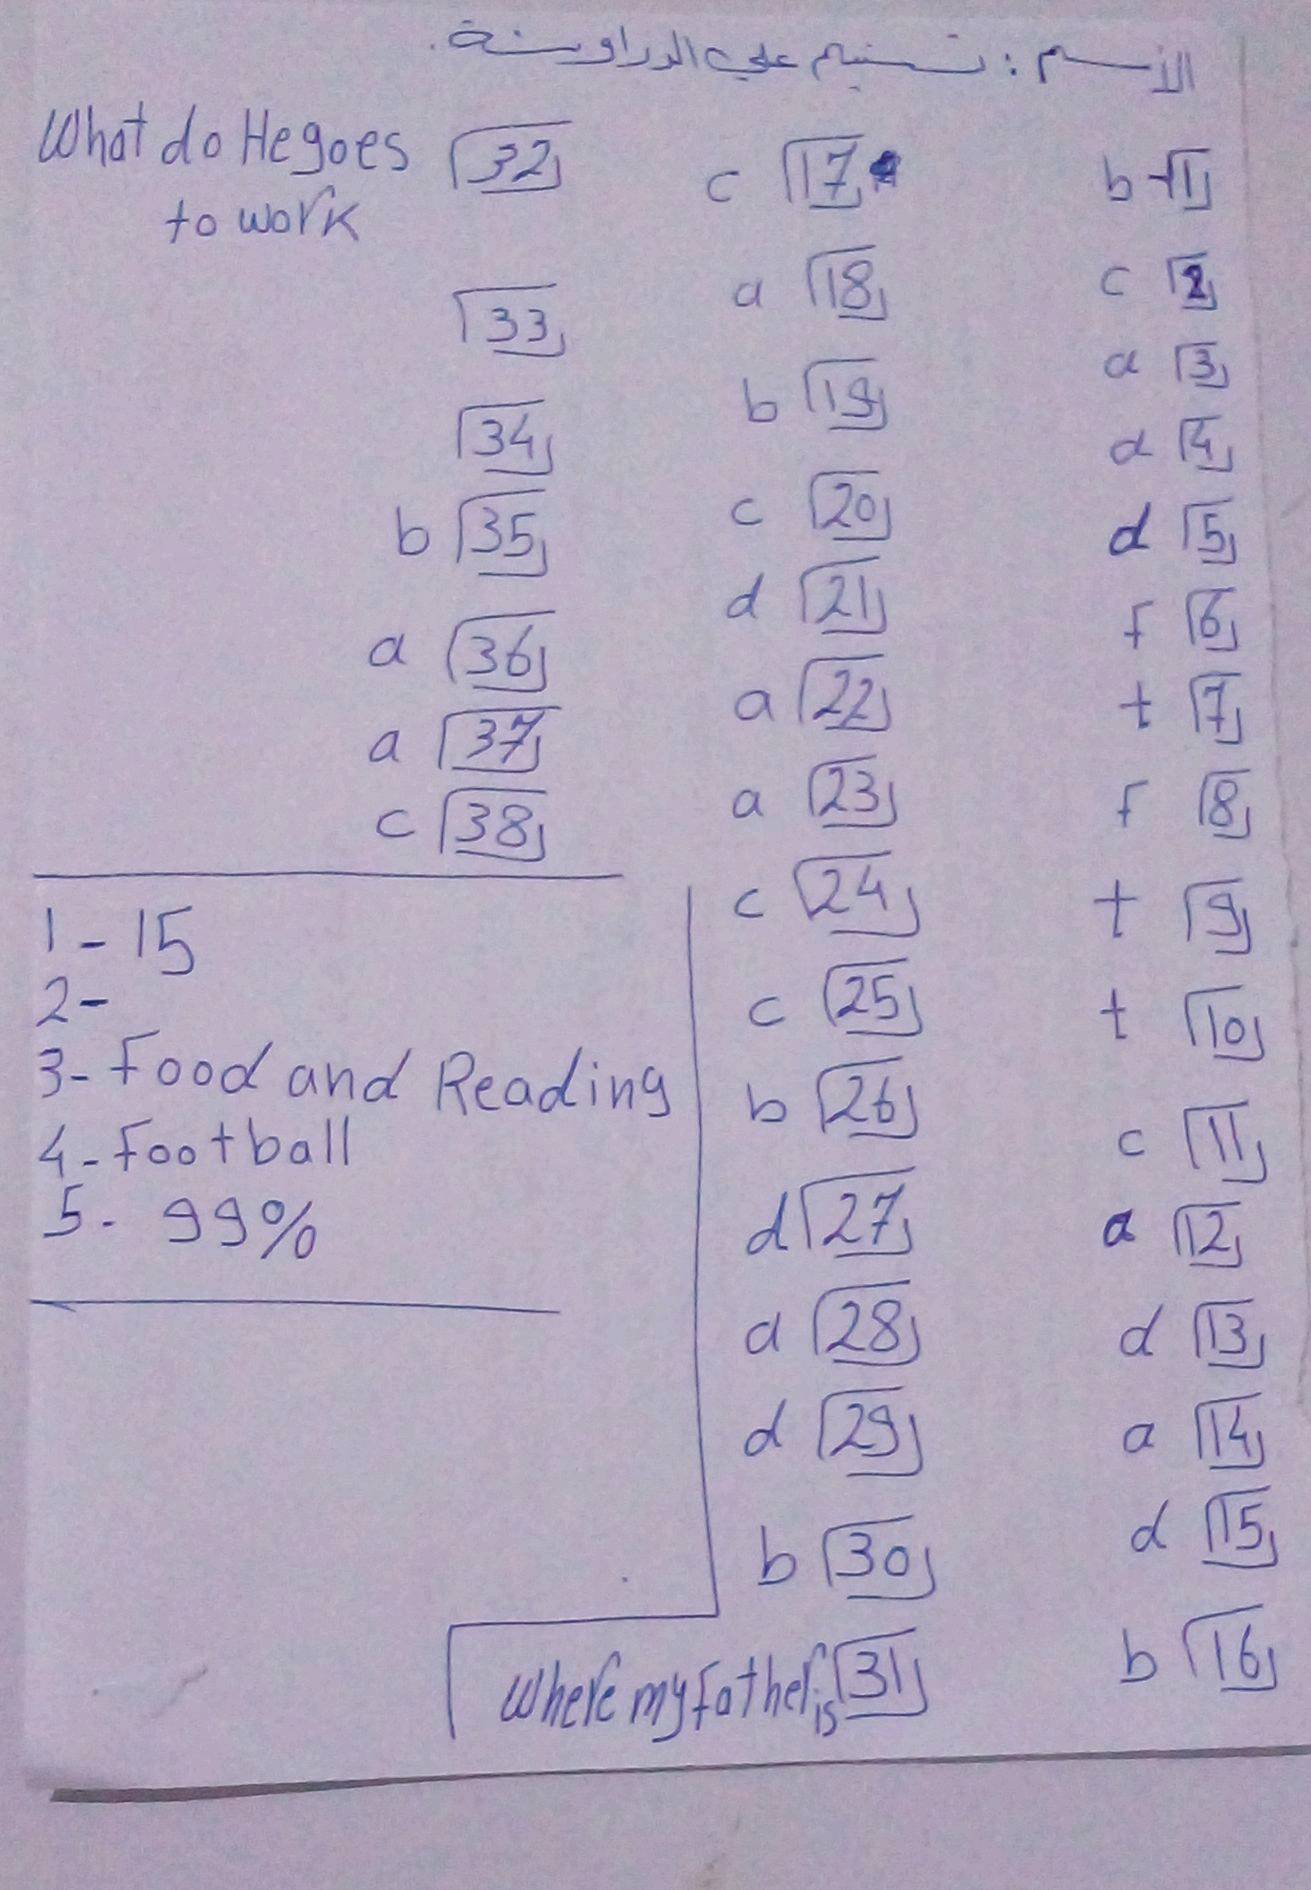 الأسم : تسنيم علي الدراوشة.
b 1
c 2
a 3
d 4
d 5
f 6
t 7
f 8
t 9
t 10
c 11
a 12
d 13
a 14
d 15
b 16
c 17
a 18
b 19
c 20
d 21
a 22
a 23
c 24
c 25
b 26
d 27
a 28
d 29
b 30
Where my father is 31
What do He goes 32
to work
33
34
b 35
a 36
a 37
c 38
1- 15
2-
3- Food and Reading
4- Football
5- 99%